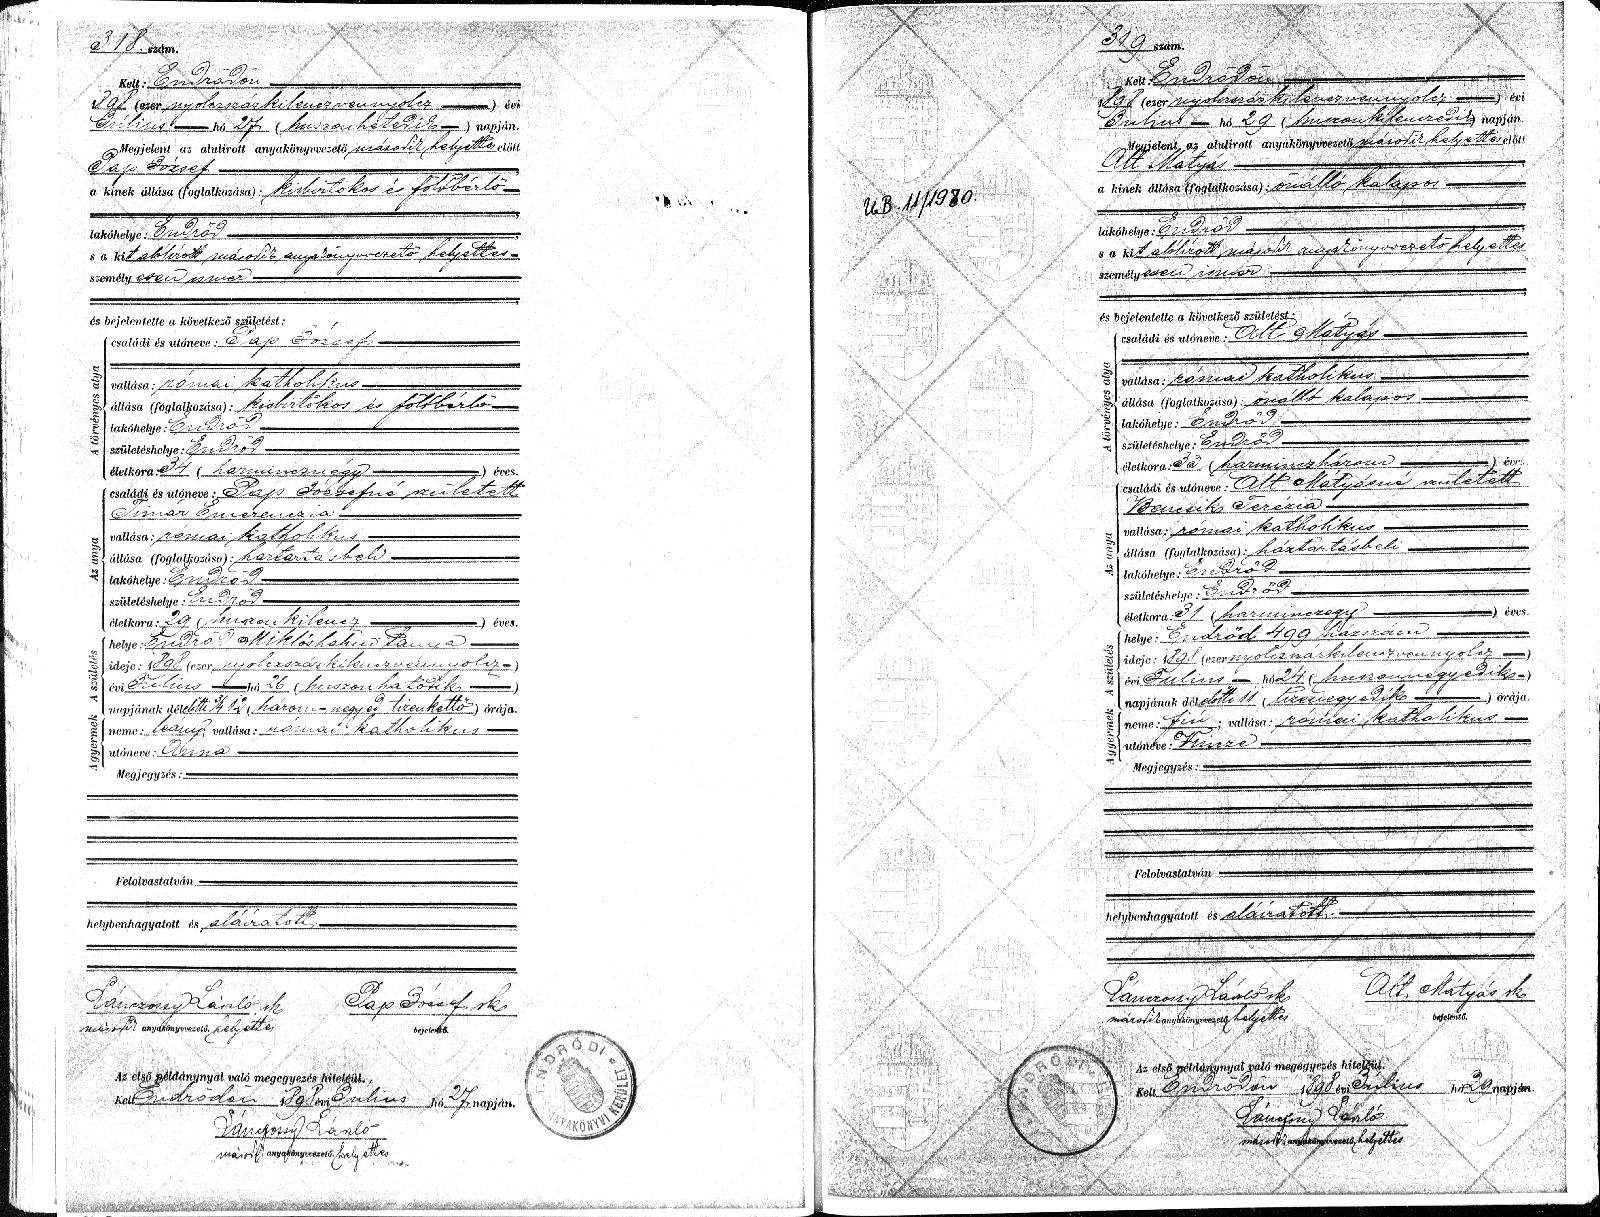 318. szám.
Kelt: Endrődön
1898 (ezer nyolczszázkilenczvennyolcz) évi
Julius hó 27 (huszonhetedik) napján.
Megjelent az alulirott anyakönyvvezető második helyettes előtt
Pap József
a kinek állása (foglalkozása): kisbirtokos és földbérlő
lakóhelye: Endrőd
s a kit alólirott második anyakönyvvezető helyettes
személyesen ismer
és bejelentette a következő születést:
A törvényes atya
családi és utóneve: Pap József
vallása: római katholikus
állása (foglalkozása): kisbirtokos és földbérlő
lakóhelye: Endrőd
születéshelye: Endrőd
életkora: 34 (harmincznégy) éves.
Az anya
családi és utóneve: Pap Józsefné született
Timar Emerenczia
vallása: római katholikus
állása (foglalkozása): háztartásbeli
lakóhelye: Endrőd
születéshelye: Endrőd
életkora: 29 (huszonkilencz) éves.
A születés
helye: Endrőd Miklóshalmi tanya
ideje: 1898 (ezer nyolczszázkilenczvennyolcz)
évi Julius hó 26 (huszonhatodik)
napjának délelőtti 3/4 12 (három-negyed tizenkettő) órája.
A gyermek
neme: leány; vallása: római katholikus
utóneve: Anna
Megjegyzés:
Felolvastatván
helybenhagyatott és aláíratott.
Lánczossy László sk
második anyakönyvvezető helyettes
Pap József sk
bejelentő.
Az első példánynyal való megegyezés hiteléül.
Kelt Endrődön 1898 évi Julius hó 27 napján.
Lánczossy László
második anyakönyvvezető helyettes
ENDRŐDI ANYAKÖNYVI KERÜLET
U.B. 11/1980.
319 szám.
Kelt: Endrődön
1898 (ezer nyolczszázkilenczvennyolcz) évi
Julius hó 29 (huszonkilenczedik) napján.
Megjelent az alulirott anyakönyvvezető második helyettes előtt
Alt Mátyás
a kinek állása (foglalkozása): önálló kalapos
lakóhelye: Endrőd
s a kit alólirott második anyakönyvvezető helyettes
személyesen ismer
és bejelentette a következő születést:
A törvényes atya
családi és utóneve: Alt Mátyás
vallása: római katholikus
állása (foglalkozása): önálló kalapos
lakóhelye: Endrőd
születéshelye: Endrőd
életkora: 33 (harminczhárom) éves.
Az anya
családi és utóneve: Alt Mátyásné született
Bencsik Terézia
vallása: római katholikus
állása (foglalkozása): háztartásbeli
lakóhelye: Endrőd
születéshelye: Endrőd
életkora: 31 (harminczegy) éves.
A születés
helye: Endrőd 499 házszám
ideje: 1898 (ezer nyolczszázkilenczvennyolcz)
évi Julius hó 24 (huszonnegyedik)
napjának délelőtti 11 (tizenegyedik) órája.
A gyermek
neme: fiú; vallása: római katholikus
utóneve: Vincze
Megjegyzés:
Felolvastatván
helybenhagyatott és aláíratott.
Lánczossy László sk
második anyakönyvvezető helyettes
Alt Mátyás sk
bejelentő.
Az első példánynyal való megegyezés hiteléül.
Kelt Endrődön 1898 évi Julius hó 29 napján.
Lánczossy László
második anyakönyvvezető helyettes